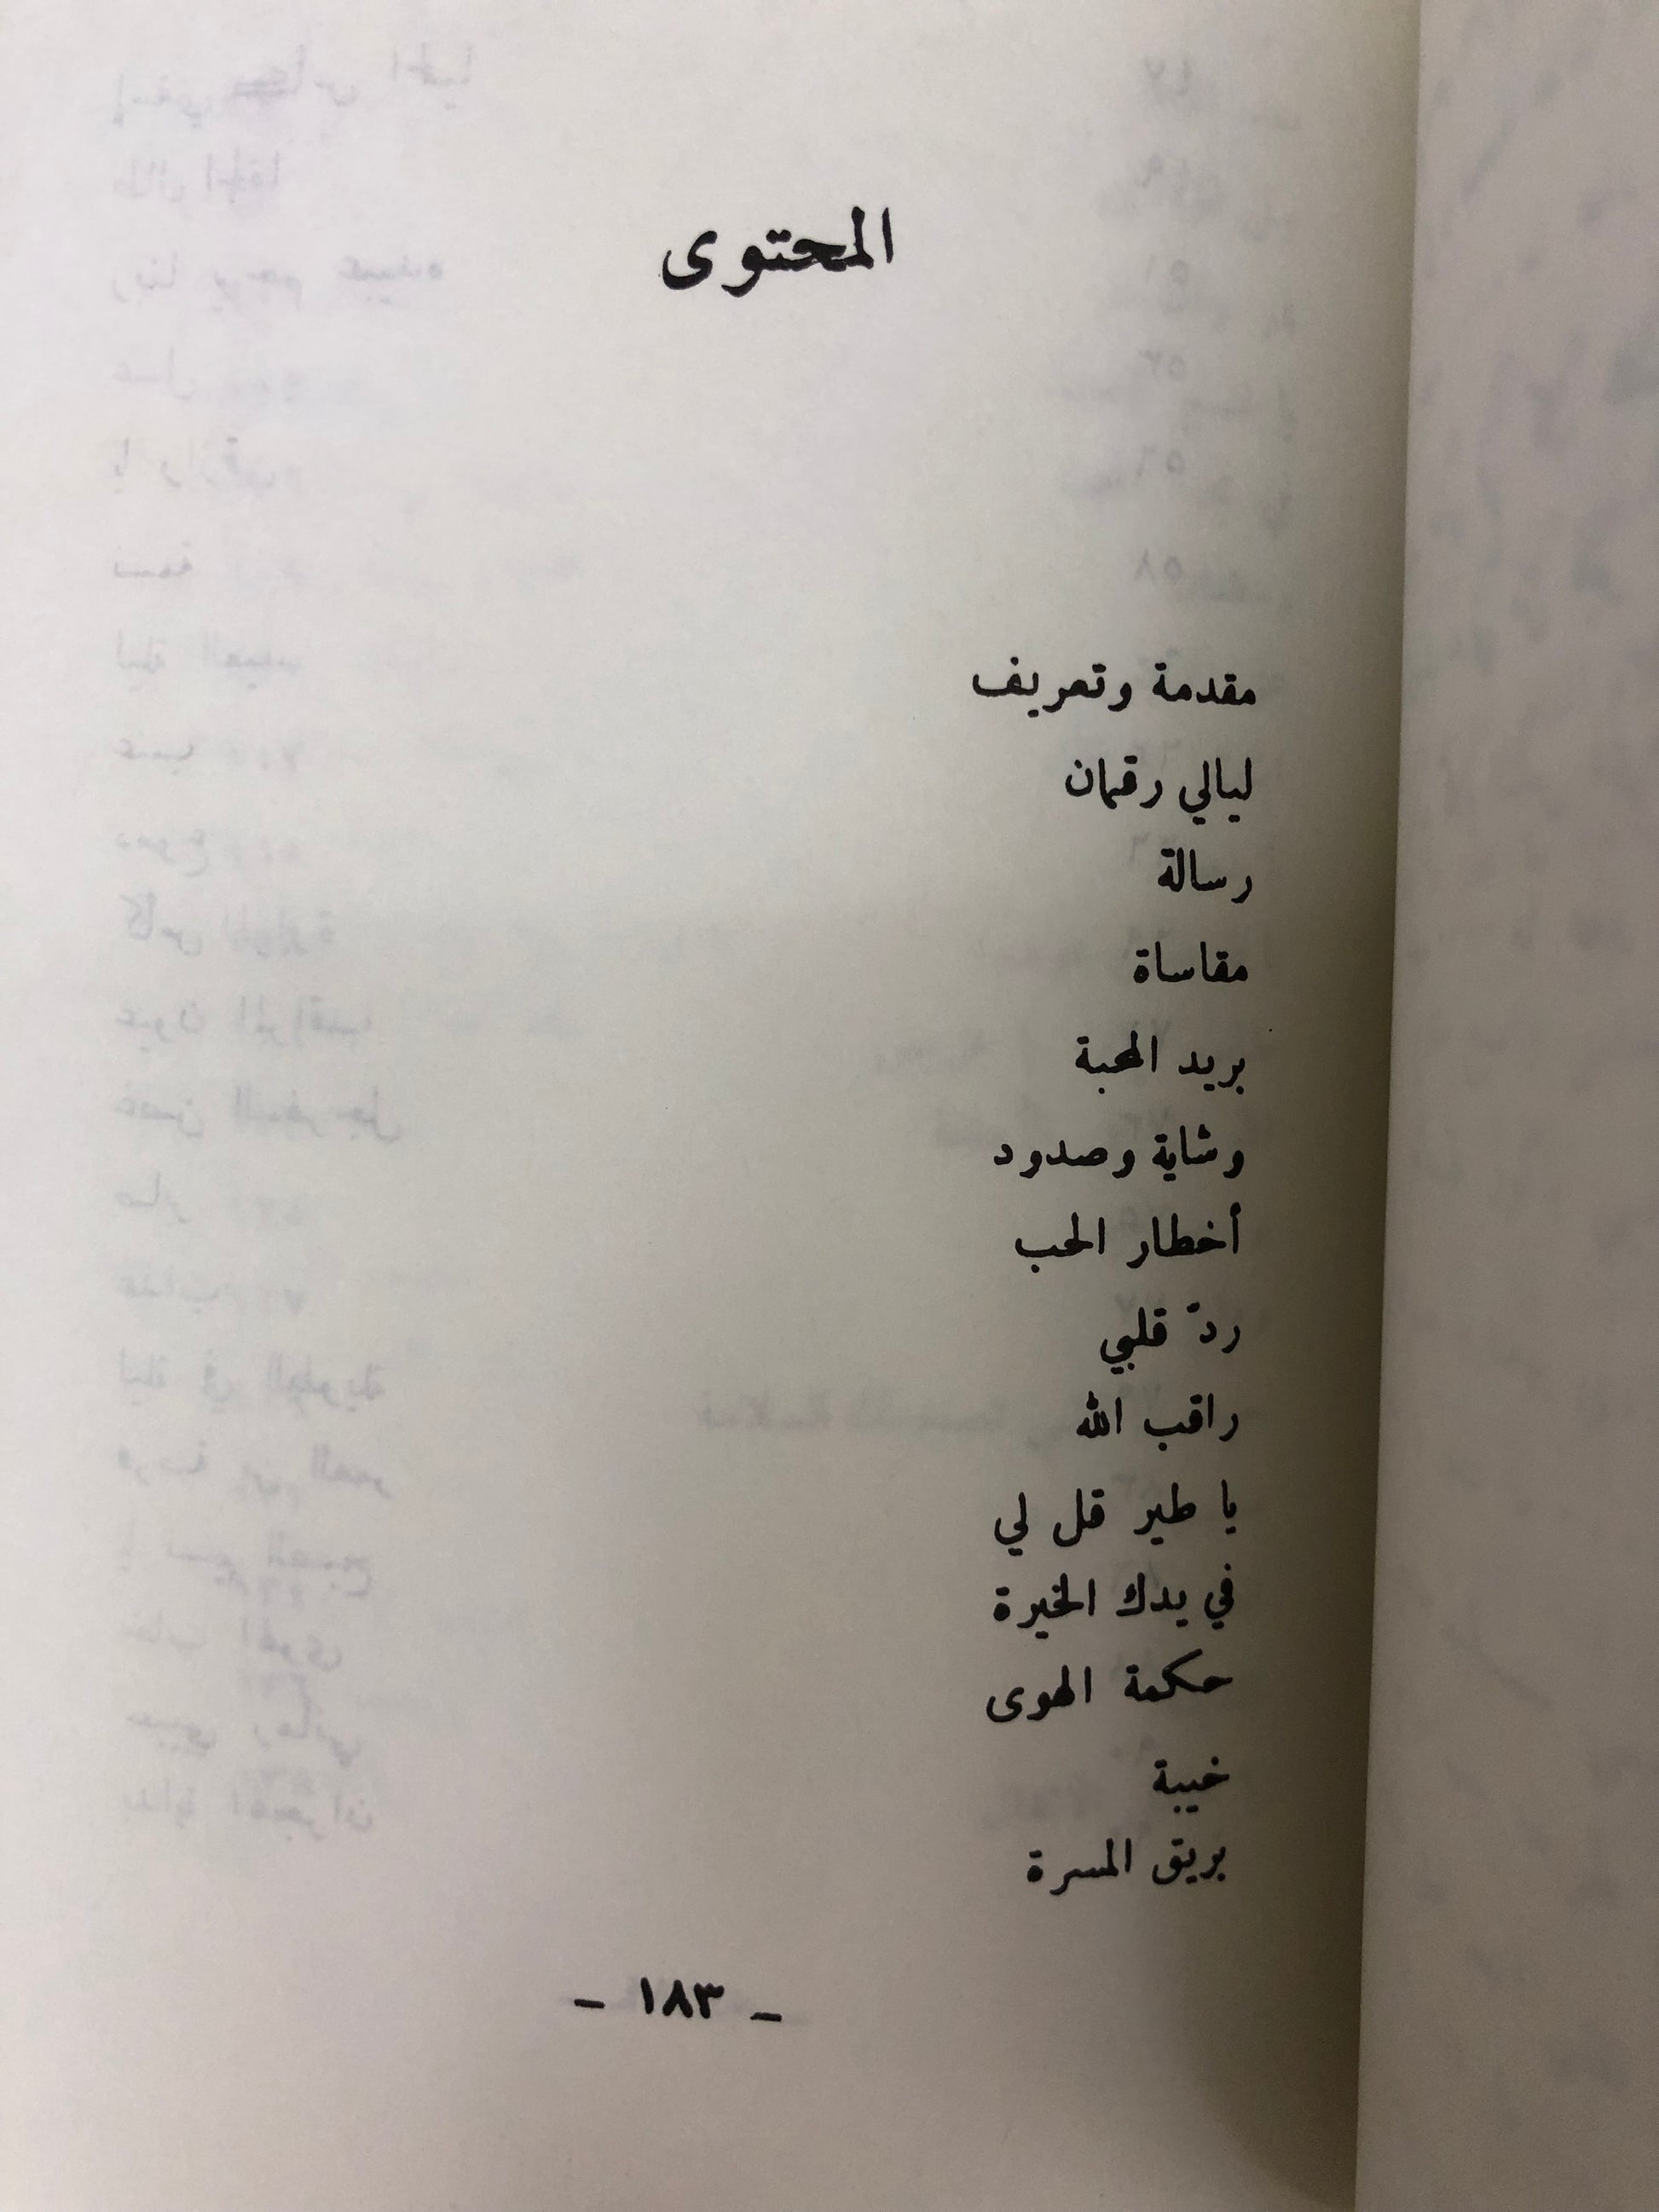 المحتوى
مقدمة وتعريف
ليالي رقمان
رسالة
مقاساة
بريد المحبة
وشاية وصدود
أخطار الحب
ردّ قلبي
راقب الله
يا طير قل لي
في يدك الخيرة
حكمة الهوى
خيبة
بريق المسرة
- ١٨٣ -